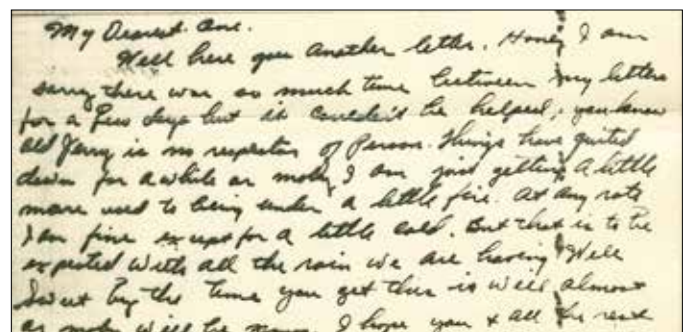 My Dearest One.
Well here goes another letter. Honey I am
sorry there was so much time between my letters
for a few days but it couldn't be helped, you know
old Jerry is no respector of Person. Things have quited
down for a while or maby I am just getting a little
more used to being under a little fire. At any rate
I am fine except for a little cold. But that is to be
expected with all the rain we are having. Well
Sweet by the time you get this it will almost
or maby will be I hope you & all the rest